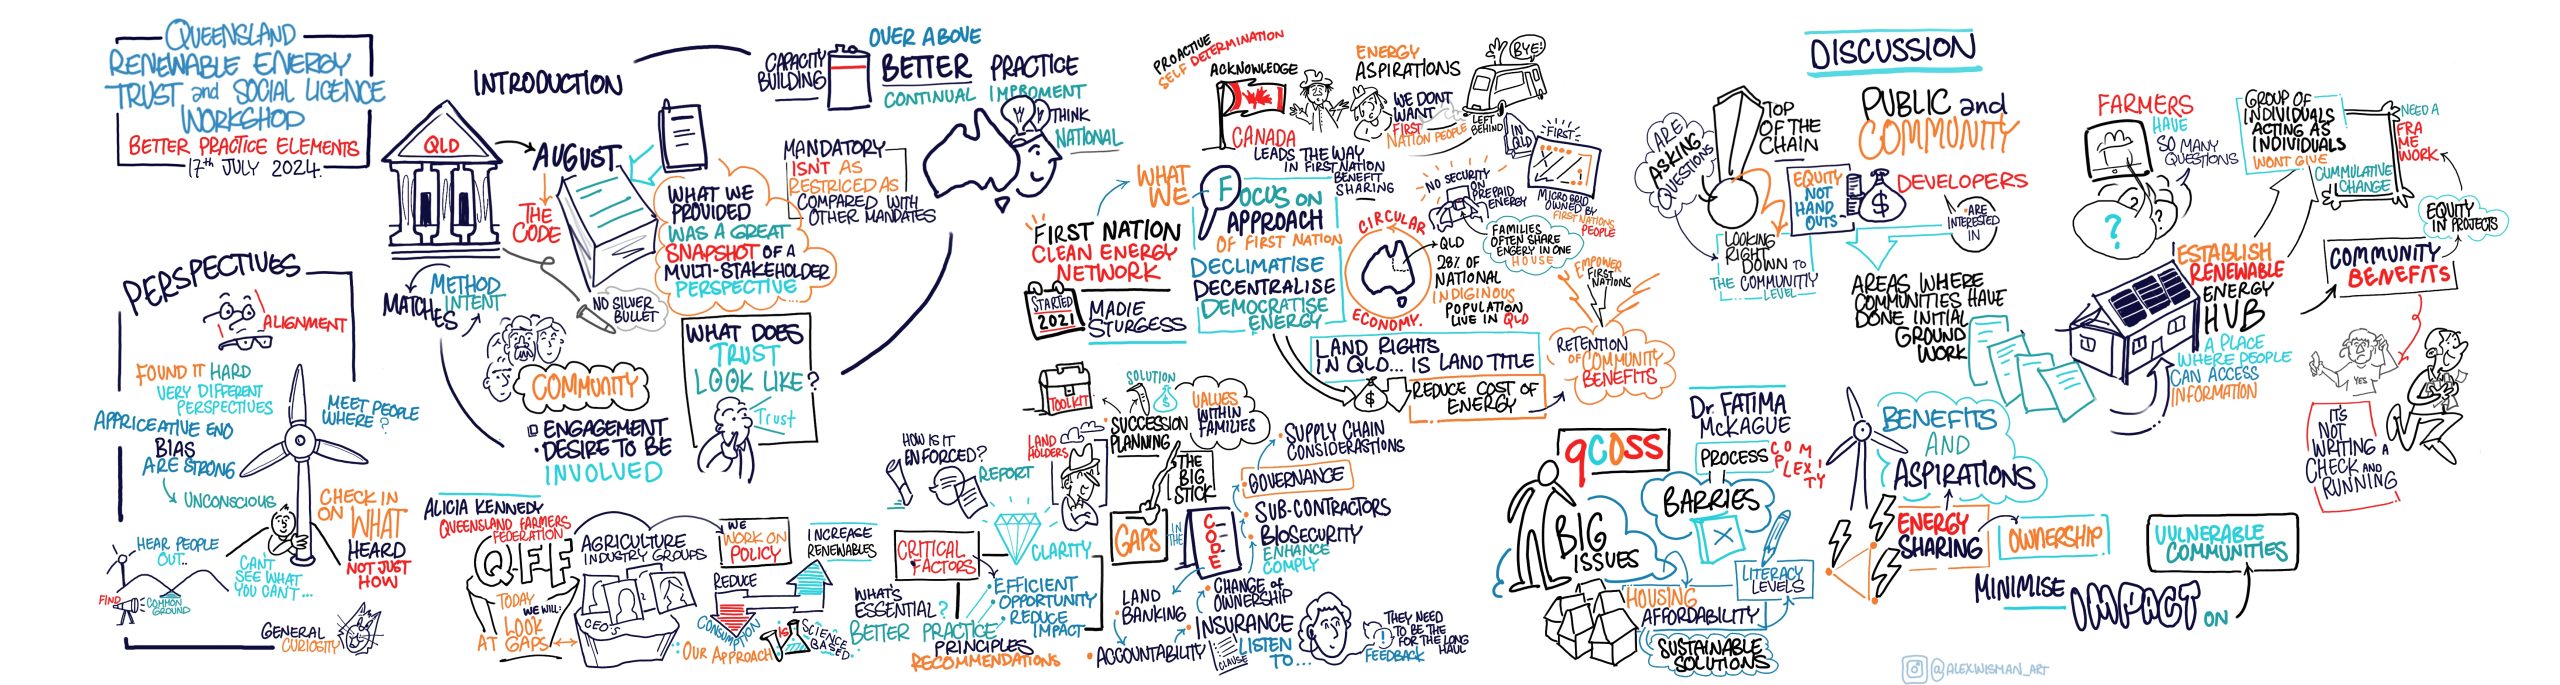 QUEENSLAND
RENEWABLE ENERGY
TRUST and SOCIAL LICENCE
WORKSHOP
BETTER PRACTICE ELEMENTS
17th JULY 2024.
INTRODUCTION
QLD
AUGUST
THE
CODE
METHOD
MATCHES INTENT
NO SILVER
BULLET
WHAT WE
PROVIDED
WAS A GREAT
SNAPSHOT OF A
MULTI-STAKEHOLDER
PERSPECTIVE
MANDATORY
ISNT AS
RESTRICED AS
COMPARED WITH
OTHER MANDATES
CAPACITY
BUILDING
OVER ABOVE
BETTER PRACTICE
CONTINUAL IMPROMENT
THINK
NATIONAL
COMMUNITY
ENGAGEMENT
DESIRE TO BE
INVOLVED
WHAT DOES
TRUST
LOOK LIKE?
Trust
PERSPECTIVES
ALIGNMENT
FOUND IT HARD
VERY DIFFERENT
PERSPECTIVES
APPRICEATIVE END
BIAS
ARE STRONG
UNCONSCIOUS
MEET PEOPLE
WHERE?
CHECK IN
ON WHAT
HEARD
NOT JUST
HOW
HEAR PEOPLE
OUT..
CAN'T
SEE WHAT
YOU CAN'T...
FIND
COMMON
GROUND
GENERAL
CURIOSITY
ALICIA KENNEDY
QUEENSLAND FARMERS
FEDERATION
QFF
TODAY
WE WILL:
LOOK
AT GAPS
AGRICULTURE
INDUSTRY GROUPS
CEO'S
WE
WORK ON
POLICY
INCREASE
RENEWABLES
REDUCE
CONSUMPTION
OUR APPROACH
IS
SCIENCE
BASED
HOW IS IT
ENFORCED?
REPORT
CRITICAL
FACTORS
CLARITY
WHAT'S
ESSENTIAL?
BETTER PRACTICE
PRINCIPLES
RECOMMENDATIONS
EFFICIENT
OPPORTUNITY
REDUCE
IMPACT
TOOLKIT
LAND
HOLDERS
SOLUTION
SUCCESSION
PLANNING
VALUES
WITHIN
FAMILIES
THE
BIG
STICK
GAPS
IN THE
CODE
SUPPLY CHAIN
CONSIDERASTIONS
GOVERNANCE
SUB-CONTRACTORS
BIOSECURITY
ENHANCE
COMPLY
CHANGE of
OWNERSHIP
LAND
BANKING
INSURANCE
ACCOUNTABILITY
CLAUSE
LISTEN
TO...
FEEDBACK
THEY NEED
TO BE THE
FOR THE LONG
HAUL
FIRST NATION
CLEAN ENERGY
NETWORK
STARTED
2021
MADIE
STURGESS
WHAT
WE
FOCUS ON
APPROACH
OF FIRST NATION
DECLIMATISE
DECENTRALISE
DEMOCRATISE
ENERGY
PROACTIVE
SELF DETERMINATION
ACKNOWLEDGE
CANADA
LEADS THE WAY
IN FIRST NATION
BENEFIT
SHARING
ENERGY
ASPIRATIONS
BYE!
WE DONT
WANT
FIRST
NATION PEOPLE
LEFT
BEHIND
IN
QLD
FIRST
MICROGRID
OWNED BY
FIRST NATIONS
PEOPLE
NO SECURITY
ON
PREPAID
ENERGY
FAMILIES
OFTEN SHARE
ENGERY IN ONE
HOUSE
CIRCULAR
ECONOMY.
QLD
28% OF
NATIONAL
INDIGINOUS
POPULATION
LIVE IN QLD
EMPOWER
FIRST
NATIONS
RETENTION
OF COMMUNITY
BENEFITS
LAND RIGHTS
IN QLD... IS LAND TITLE
REDUCE COST OF
ENERGY
DISCUSSION
ARE
ASKING
QUESTIONS
TOP
OF THE
CHAIN
LOOKING
RIGHT
DOWN TO
THE COMMUNITY
LEVEL
PUBLIC and
COMMUNITY
EQUITY
NOT
HAND
OUTS
DEVELOPERS
ARE
INTERESTED
IN
AREAS WHERE
COMMUNITIES HAVE
DONE INITIAL
GROUND
WORK
FARMERS
HAVE
SO MANY
QUESTIONS
?
ESTABLISH
RENEWABLE
ENERGY
HUB
A PLACE
WHERE PEOPLE
CAN ACCESS
INFORMATION
GROUP OF
INDIVIDUALS
ACTING AS
INDIVIDUALS
WONT GIVE
CUMMULATIVE
CHANGE
NEED A
FRA
ME
WORK
EQUITY
IN PROJECTS
COMMUNITY
BENEFITS
YES
IT'S
NOT
WRITING A
CHECK AND
RUNNING
Dr. FATIMA
McKAGUE
QCOSS
PROCESS
COMPLEXITY
BARRIES
BIG
ISSUES
LITERACY
LEVELS
HOUSING
AFFORDABILITY
SUSTAINABLE
SOLUTIONS
BENEFITS
AND
ASPIRATIONS
ENERGY
SHARING
OWNERSHIP
MINIMISE
IMPACT ON
VULNERABLE
COMMUNITIES
@ALEX.WISMAN_ART